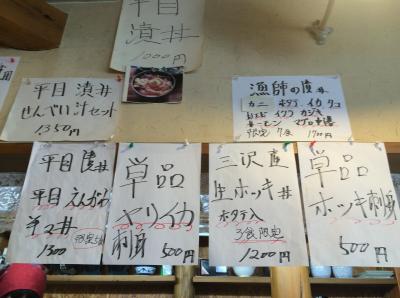 平目
漬丼
1000円
平目 漬丼
せんべい汁セット
1350円
漁師の漬丼
カニ ホタテ イカ タコ
イクラ
サーモン マグロ
限定 7食 1700円
平目 漬丼
平目 えんがわ
1300
単品
ヤリイカ
刺身 500円
三沢産
生ホッキ丼
ホタテ入
3食限定
1200円
単品
ホッキ刺身
500円